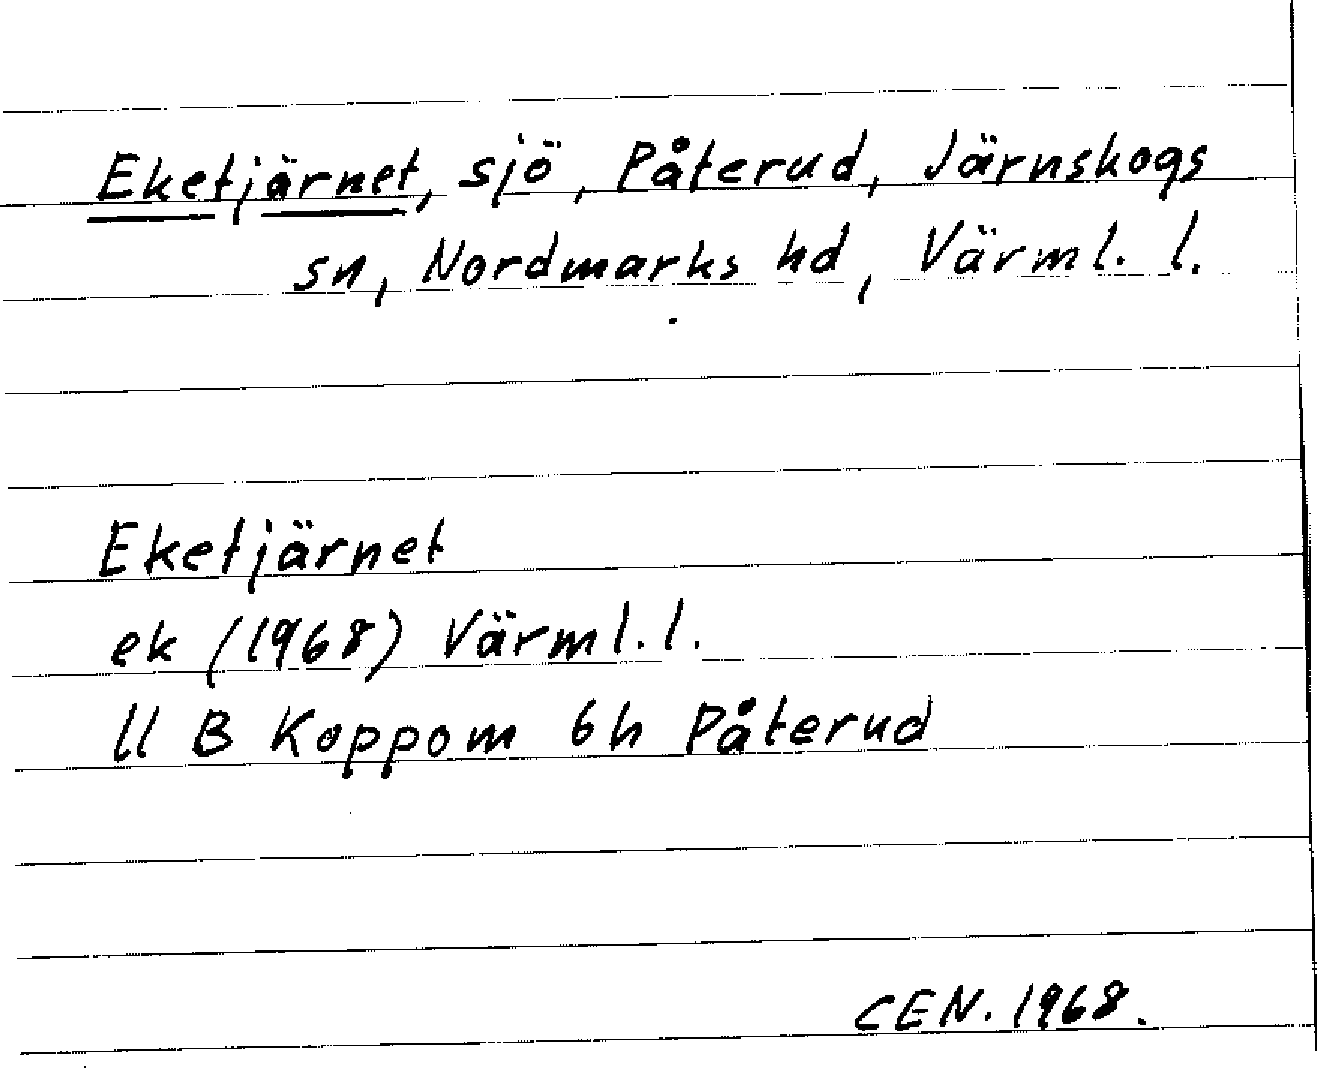 Eketjärnet, sjö, Påterud, Järnskogs
sn, Nordmarks hd, Värml. l.
Eketjärnet
ek (1968) Värml. l.
ll B Koppom 6h Påterud
CEN. 1968.